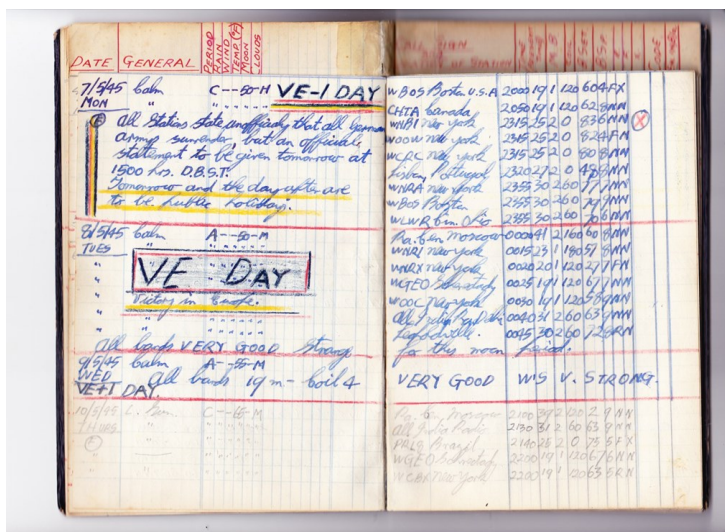 DATE GENERAL PERIOD RAIN WIND TEMP (°F) MOON CLOUDS
7/5/45 Calm C---50-M VE-1 DAY
MON
All Stations state unofficially that all German
army surrender, but an officiale
statement to be given tomorrow at
1500 hrs. D.B.S.T.
Tomorrow and the day after are
to be public holidays.
8/5/45 Calm A---50-M
TUES
VE DAY
Victory in Europe.
All bands VERY GOOD Strange
9/5/45 Calm A---55-M
WED All bands 19m - Coil 4
VE+1 DAY.
10/5/45 C---65-M
THURS
OF STATION
WBOS Boston U.S.A 2000 19 1 120 604 FX
CHTA Canada 2050 19 1 120 62 8 NN
WNBI New York 2315 25 2 0 83 6 NN
WOOW New York 2315 25 2 0 82 4 FN
WCRC New York 2315 25 2 0 80 8 NN
Lisbon 2320 27 2 0
WNRA New York 2355 30 2 60 77
WBOS Boston 2355 30 2 60 79
WLWR Cin. Ohio 2355 30 2 60 76
Moscow 0000 41 2 160 60 8 NN
WNRI New York 0015 23 1 180 51 8 NN
WNRX New York 0020 20 1 120 27 7 FN
WGEO 0025 19 1 120 67 7 NN
WOOC New York 0030 19 1 120 58 9 NN
All India 0040 31 2 60 63 9 NN
Leopoldville. 0045 30 2 60 72 6 RN
for this moon period.
VERY GOOD W'S V. STRONG.
Moscow 2100 39 2 120 2 9 NN
All India Radio 2130 31 2 60 63 9 NN
PRL8 Brazil 2140 25 2 0 75 5 FX
WGEO 2200 19 1 120 67 6 NN
New York 2200 19 1 120 63 5 RN